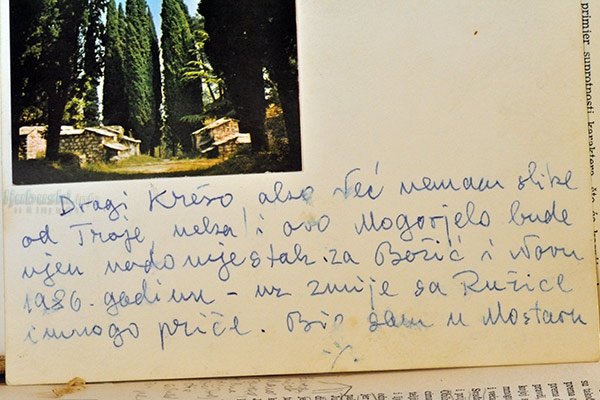 ljubuski
Dragi Krešo, ako već nemam slike
od Troje, neka i ovo Mogorjelo bude
njen nadomjestak za Božić i Novu
1986. godinu – uz zmije sa Ružice
i mnogo priče. Bio sam u Mostaru
./.
primjer suprotnosti karaktera, što